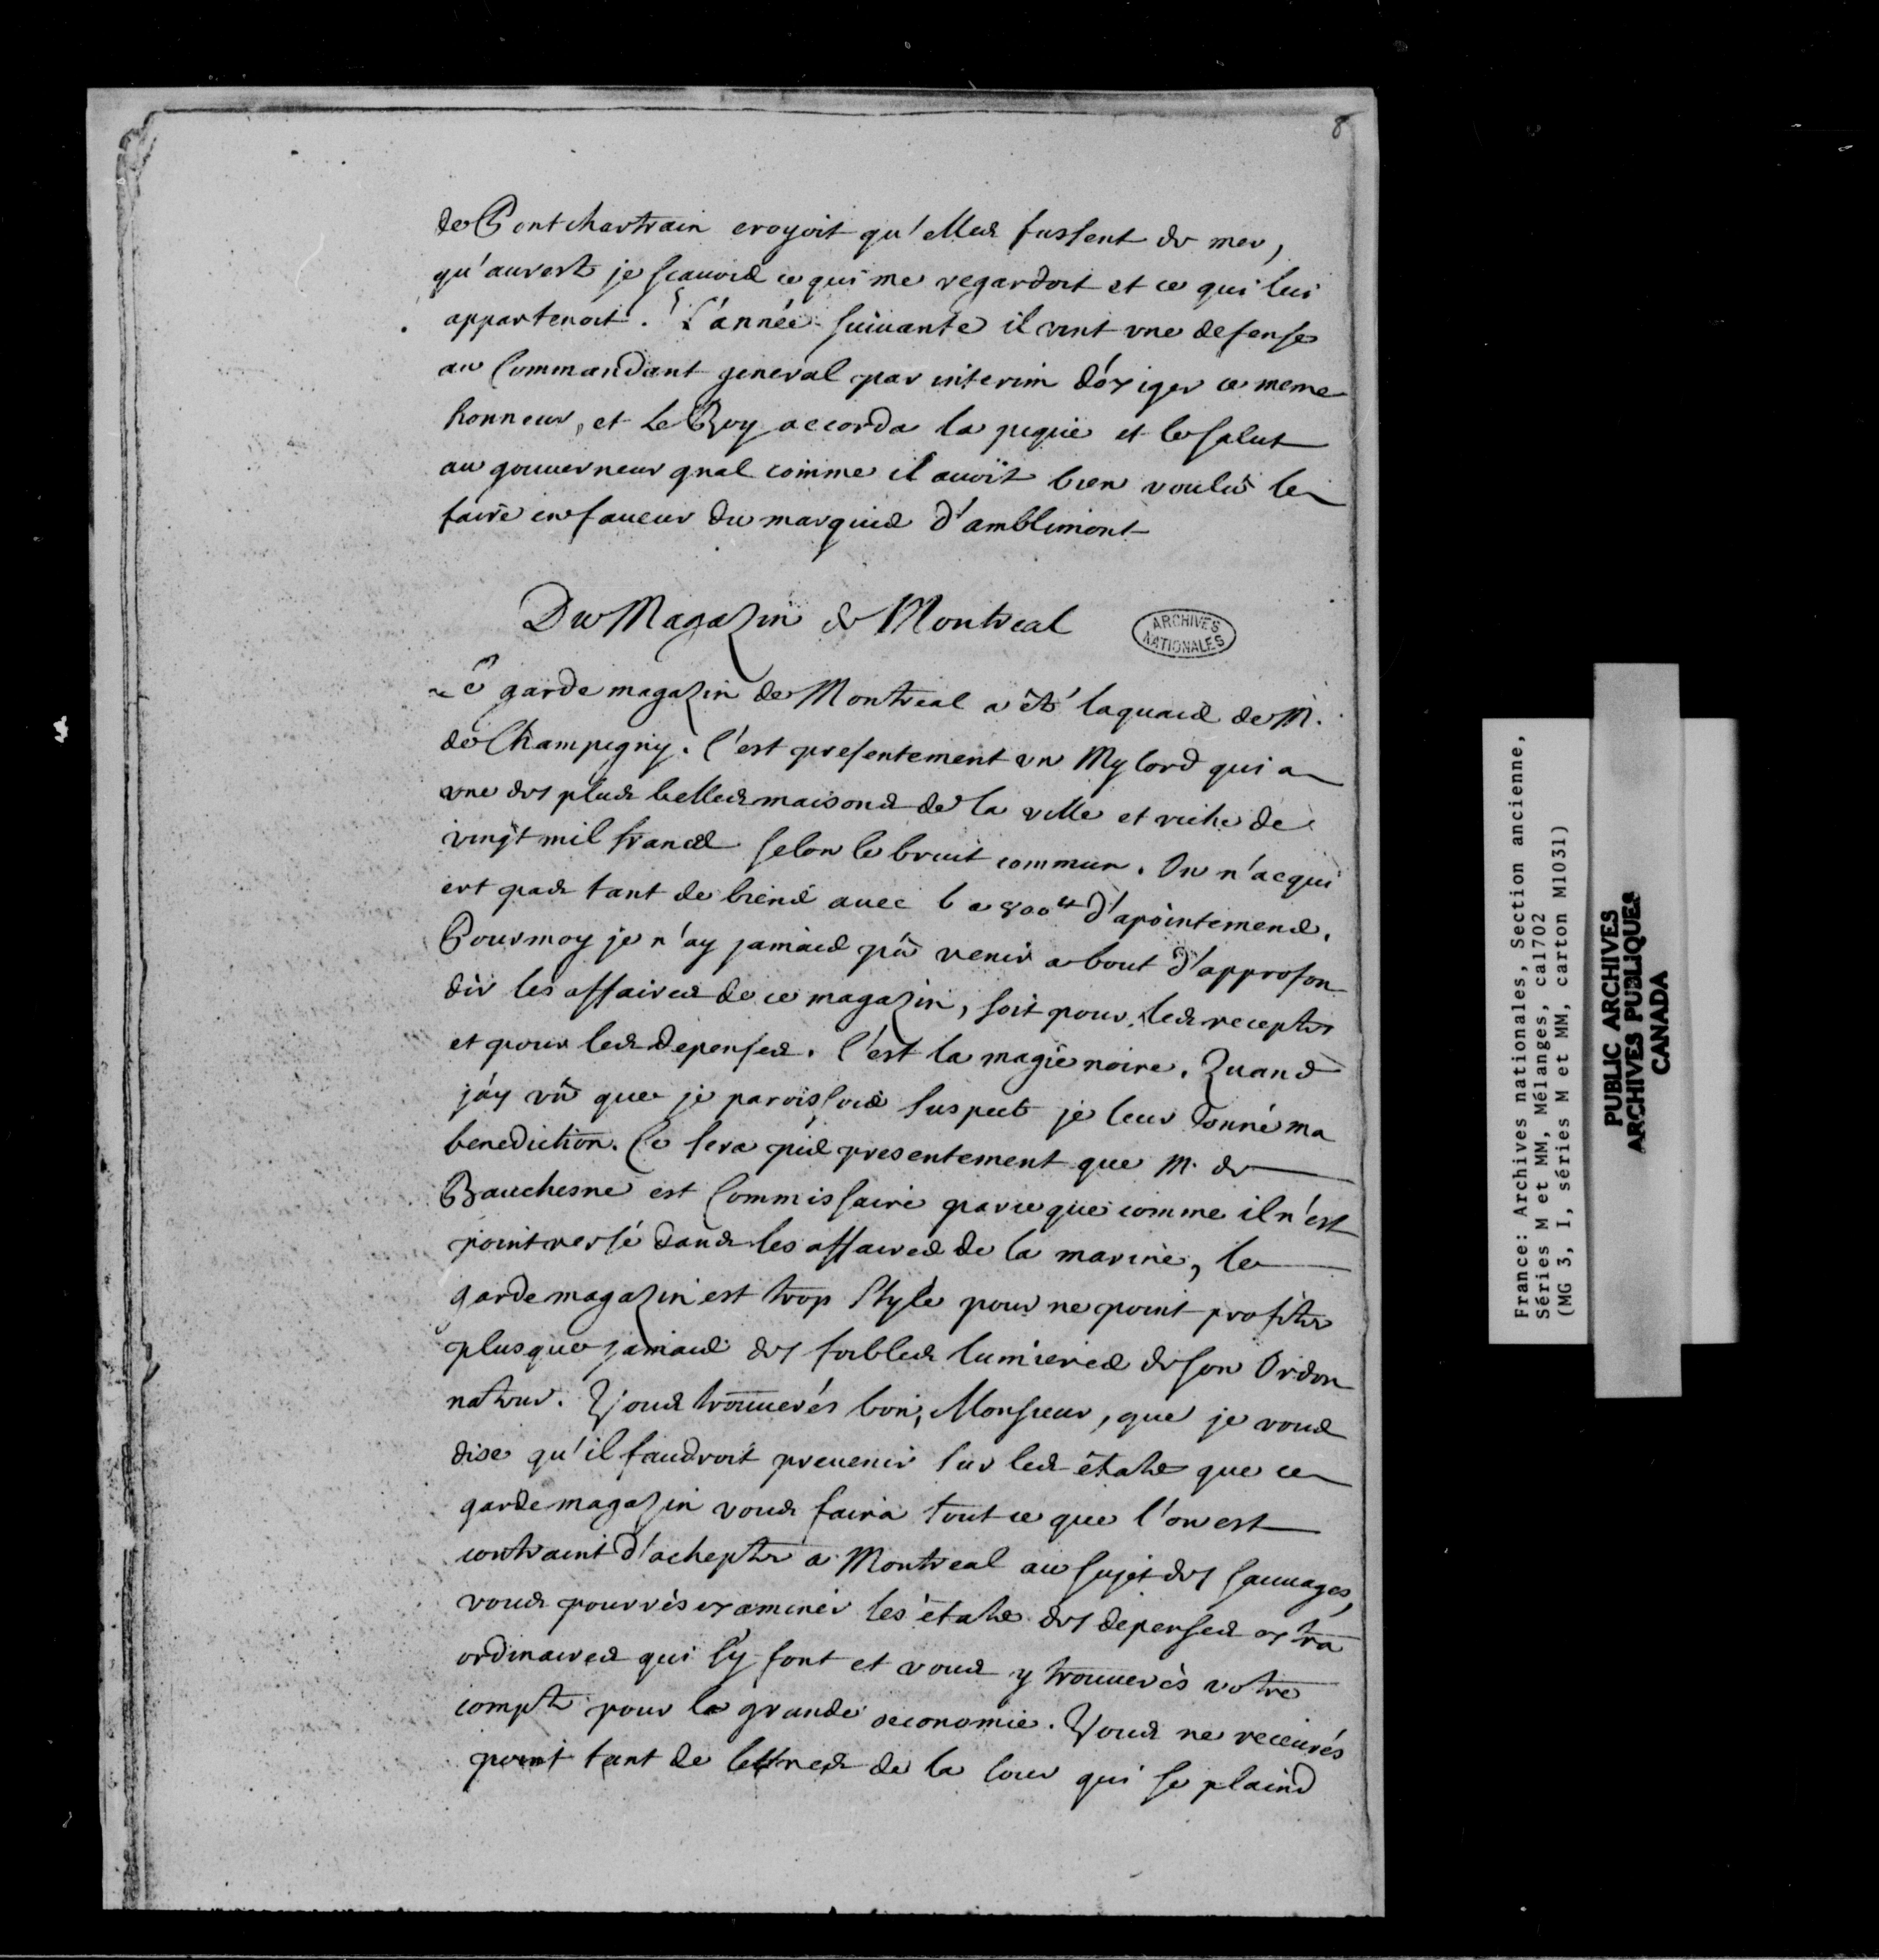 8
de Pontchartrain croyoit qu'elles fussent de mer,
qu'au reste je scauois ce qui me regardoit et ce qui lui
appartenoit. L'année suiuante il vint vne defense
au Commandant general par interim d'éxiger ce meme
honneur, et le Roy accorda la pique et le salut
au gouuerneur gnal comme il auoit bien voulu le
faire en faueur du marquis d'amblimont
Du Magazin de Montreal
ARCHIVES NATIONALES
Le garde magazin de Montreal a èté laquais de M.
de Champigny. C'est presentement vn Mylord qui a
vne des plus belles maisons de la ville et riche de
vingt mil francs selon le bruit commun. On n'acqui
ert pas tant de biens auec 6 a 800ᵗᵗ d'apointemens.
Pour moy je n'ay jamais pû venir a bout d'approfon
dir les affaires de ce magazin, soit pour les receptes
et pour les depenses. C'est la magie noire. Quand
j'ay vû que je paroissois suspect je leur donné ma
benediction. Ce sera pis presentement que M. de
Bauchesne est Commissaire parceque comme il n'est
point versé dans les affaires de la marine, le
garde magazin est trop stylé pour ne point profiter
plus que jamais des foibles lumieres de son Ordon
nateur. Vous trouuerés bon, Monsieur, que je vous
dise qu'il faudroit preuenir sur les ètats que ce
garde magazin vous faira tout ce que l'on est
contraint d'achepter a Montreal au sujet des sauuages,
vous pourrés examiner les ètats des depenses extra
ordinaires qui s'y font et vous y trouuerés votre
compte pour la grande oeconomie. Vous ne receurés
point tant de lettres de la Cour qui se plaind
France: Archives nationales, Section ancienne,
Séries M et MM, Mélanges, ca1702
(MG 3, I, séries M et MM, carton M1031)
PUBLIC ARCHIVES
ARCHIVES PUBLIQUES
CANADA